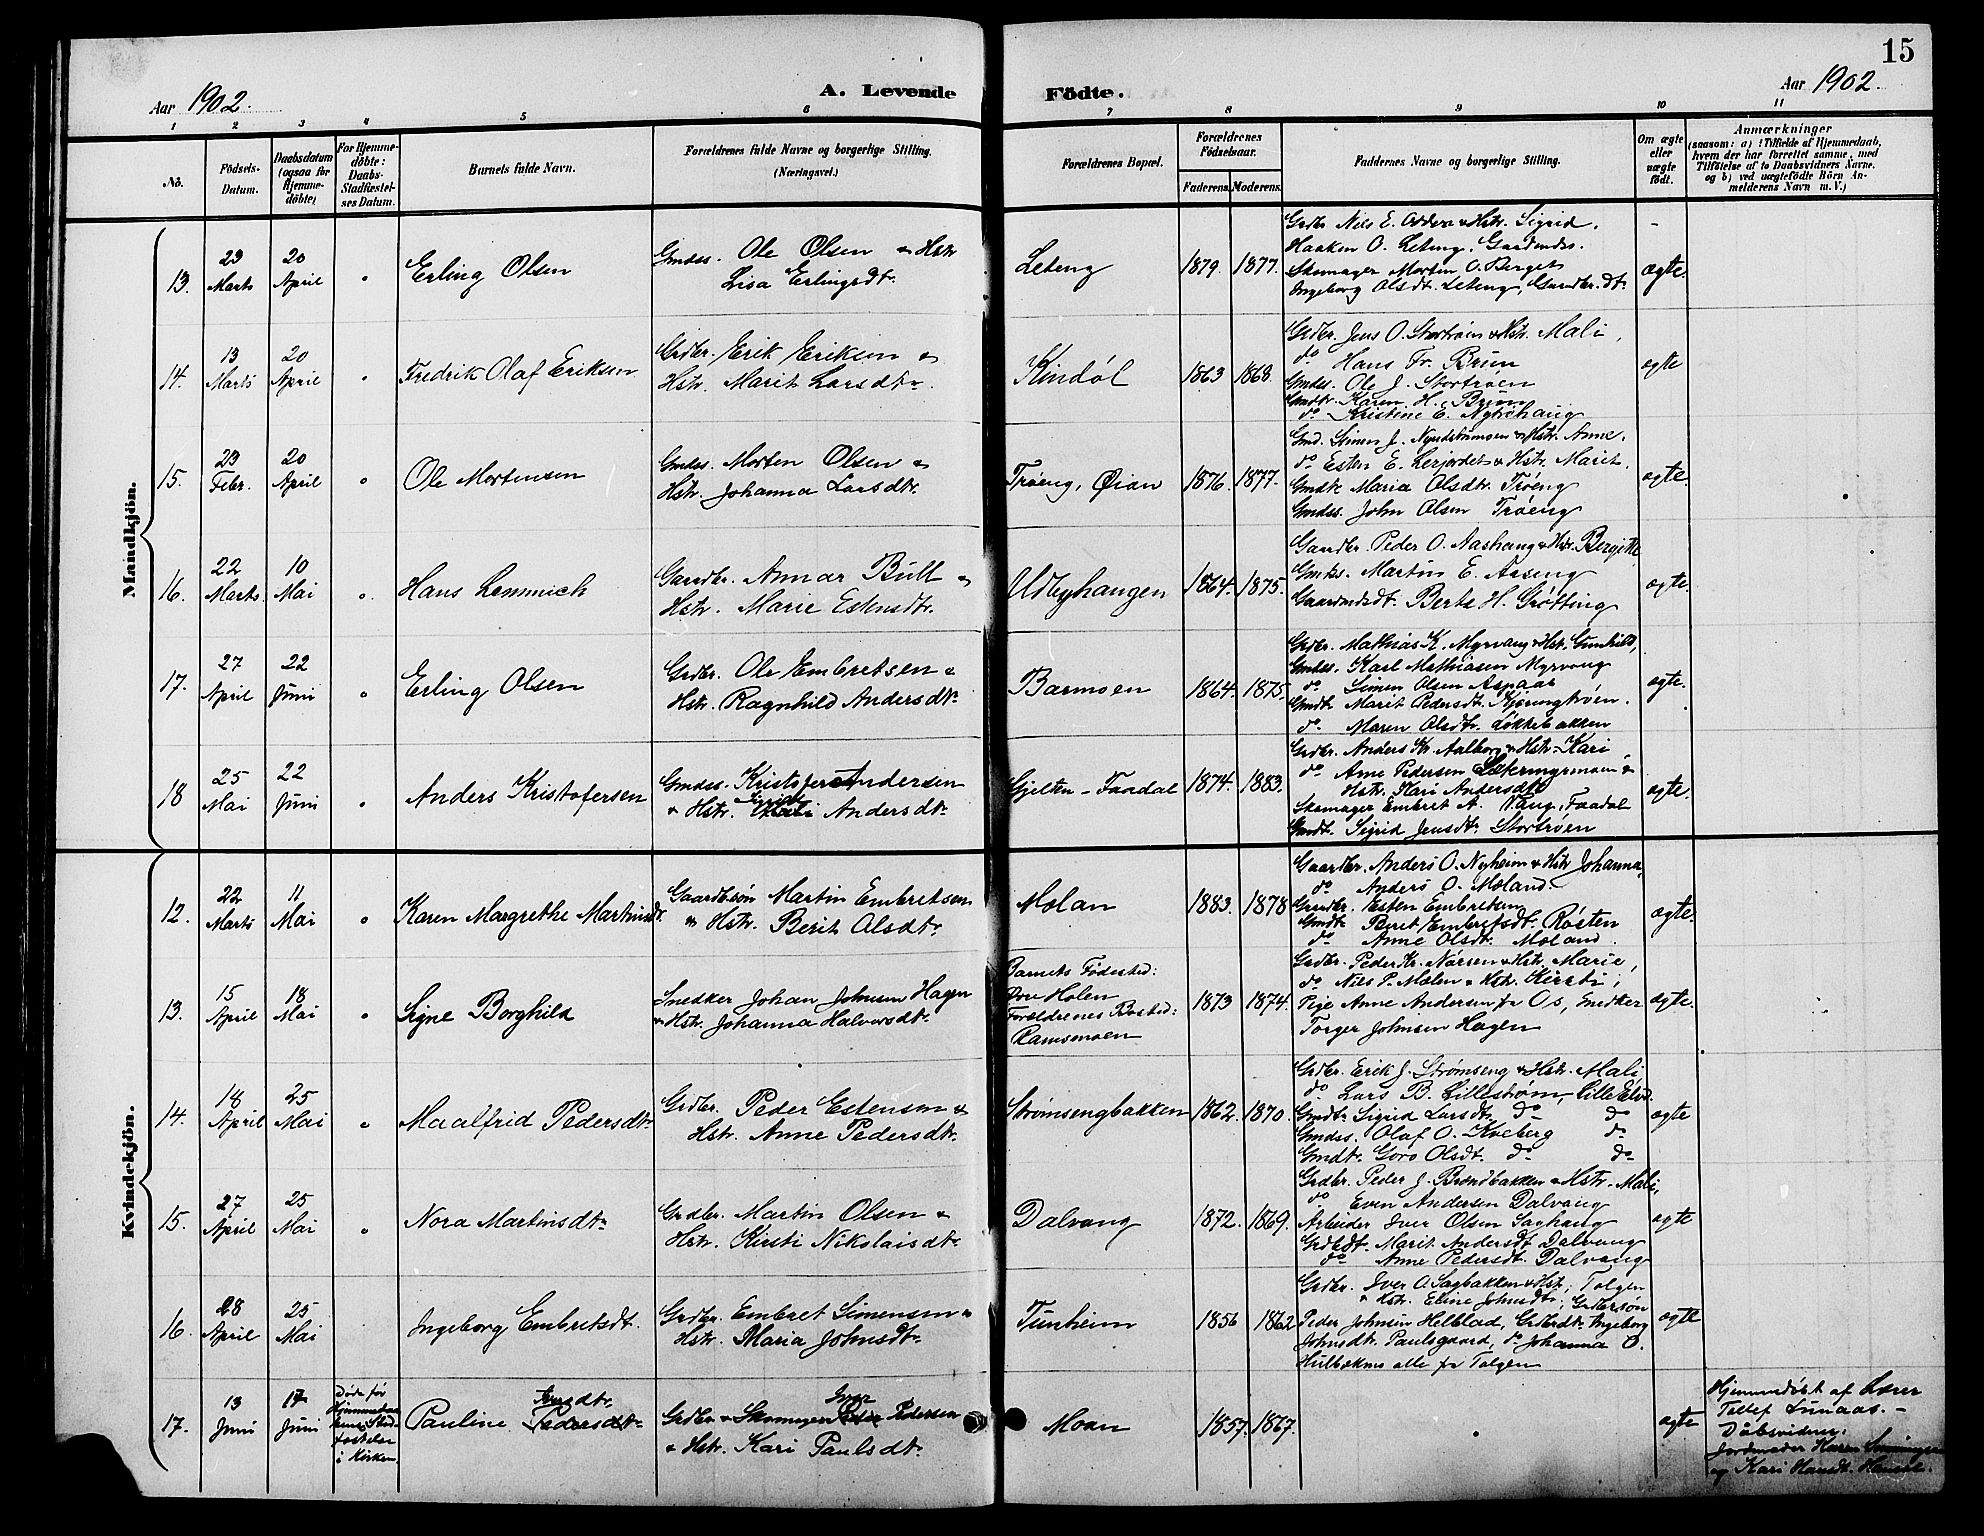 15
Aar 1902.
A. Levende Födte.
Aar 1902.
1 2 3 4 5 6 7 8 9 10 11
No.
Födsels-
Datum.
Daabsdatum
(ogsaa for
Hjemme-
döbte)
For Hjemme-
döbte:
Daabs-
Stadfæstel-
ses Datum.
Barnets fulde Navn.
Forældrenes fulde Navne og borgerlige Stilling.
(Næringsvei.)
Forældrenes Bopæl.
Forældrenes
Födselsaar.
Faderens. Moderens.
Faddernes Navne og borgerlige Stilling.
Om ægte
eller
uægte
födt.
Anmærkninger
(saasom: a) i Tilfælde af Hjemmedaab,
hvem der har forrettet samme, med
Tilföielse af to Daabsvidners Navne.
og b) ved uægtefödte Börn An-
melderens Navn m. V.)
Mandkjön.
13.
23
Marts
20
April
"
Erling Olsen
Gmdss. Ole Olsen & Hstr
Lisa Erlingsdtr.
Leteng
1879. 1877.
Grdbr Nils E. & Hstr. Sigrid.
Haaken O. Leteng, Gaardmds.
Skomager Morten O. Berget
Ingeborg Olsdt. Leteng, Gaardbr. dtr.
ægte.
14.
13
Marts
20
April
"
Fredrik Olaf Eriksen
Grdbr. Erik Eriksen &
Hstr. Marit Larsdtr.
Kindøl
1863 1868
Grdbr. Jens O. Stortrøen & Hstr. Mali,
do Hans Fr. Brun
Gmdss. Ole J. Stortrøen
Gmdtr. Karen H. Brun
do Kristine E. Nytrøhaug
ægte
15.
23
Febr.
20
April
"
Ole Mortensen
Gmdss. Morten Olsen &
Hstr. Johanna Larsdtr.
Trøeng, Øian
1876. 1877.
Gmd. Simen J. & Hstr. Anne.
do Esten E. Lerjordet & Hstr. Marit.
Gmdtr Maria Olsdtr. Trøeng
Gmdss. John Olsen Trøeng
ægte.
16.
22
Marts.
10
Mai
"
Hans Lemmich
Gaardbr. Annar Bull &
Hstr. Marie Estensdtr.
Udbyhaugen
1864. 1875.
Gaardbr. Peder O. Aashaug & Hstr. Bergitte
Gmdss. Martin E. Aaseng
Gaardmdsdt. Berte H. Grøtting
ægte.
17.
27
April
22
Juni
"
Erling Olsen
Grdbr. Ole Embretsen &
Hstr. Ragnhild Andersdtr.
Barmoen
1864. 1875.
Grdbr. Mathias K. Myrvang & Hstr. Gunhild,
Gmdss. Karl Mathiasen Myrvang
do Simen Olsen Aspaas
Gmdtr Marit Pedersdt. Kjøringtrøen.
do Maren Olsdtr. Løkkebakken
ægte.
18
25
Mai
22
Juni
"
Anders Kristofersen
Gmdss. Kristofer Andersen
& Hstr. Andersdtr.
Gjelten - Faadal
1874. 1883.
Grdbr. Anders Kr. Aalborg & Hstr. Kari
do Arne Pedersen &
Hstr. Kari Andersdtr
Skomager Embret A. Vang, Faadal
Gmdt. Sigrid Jensdtr. Stortrøen
ægte.
Kvindekjön.
12.
22
Marts
11
Mai
"
Karen Margrethe Martinsdt.
Gaardbrsøn Martin Embretsen
& Hstr. Berit Olsdtr.
Molan
1883. 1878
Gaardbr. Anders O. Nyheim & Hstr Johanna,
do Anders O. Moland.
Gaardbr. Esten Embretsen
Gmdtr Beret Embretsdt. Røsten
do Anne Olsdt. Moland.
ægte.
13.
15
April
18
Mai
"
Signe Borghild
Snedker Johan Johnsen Hagen
& Hstr. Johanna Halvorsdtr.
Barnets Fødested:
Øvre Holen
Forældrenes Bosted:
Ramsmoen
1873 1874.
Grdbr. Peder Kr. Nørsen & Hstr. Marie,
do Nils P. Molen & Hstr. Kirsti;
Pige Anne Andersen fr Os, Snedker
Torger Johnsen Hagen
ægte.
14.
18
April
25
Mai
"
Maalfrid Pedersdtr.
Grdbr. Peder Estensen &
Hstr. Anne Pedersdtr.
Strømsengbakken
1862. 1870.
Grdbr. Erik J. Strømseng & Hstr. Mali
do Lars B. Lillestrøm, Lille Elvd.
Gmdtr Sigrid Larsdtr do do
Gmdss. Olaf O. Kveberg do
Gmdt. Goro Olsdt. do do
ægte
15.
27
April
25
Mai
"
Nora Martinsdtr.
Grdbr. Martin Olsen &
Hstr. Kirsti Nikolaisdtr.
Dalvang
1872. 1869.
Grdbr. Peder J. Brændbakken & Hstr. Mali,
do Even Andersen Dalvang
Arbeider Iver Olsen Saghaug
Grdbdt. Marit Andersdt Dalvang
do Anne Pedersdt. Dalvang
ægte
16.
28
April
25
Mai
Ingeborg Embretsdt.
Grdbr. Embret Simensen &
Hstr. Maria Johnsdtr.
Tunheim
1856 1862
Grdbr. Iver O. Sagbakken & Hst, Tolgen
& Hstr. Eline Johnsdtr, Grdbrsøn
Peder Johnsen Helblad, Grdbrdtr. Ingeborg
Johnsdtr. Paulsgaard, do Johanna O.
alle fr Tolgen
ægte
17.
13
Juni
17
Juni
Døde før
Stad-
fæstelse
i Kirken.
Iversdtr.
Pauline Pedersdtr.
Iver
Grdbr. & Skomager Peder Pedersen
& Hstr. Kari Paulsdtr.
Moan
1857. 1867.
ægte
Hjemmedøbt af Lærer
Tellef Lunaas. -
Daabsvidner:
Jordmoder Karen
og Kari Hansdt.